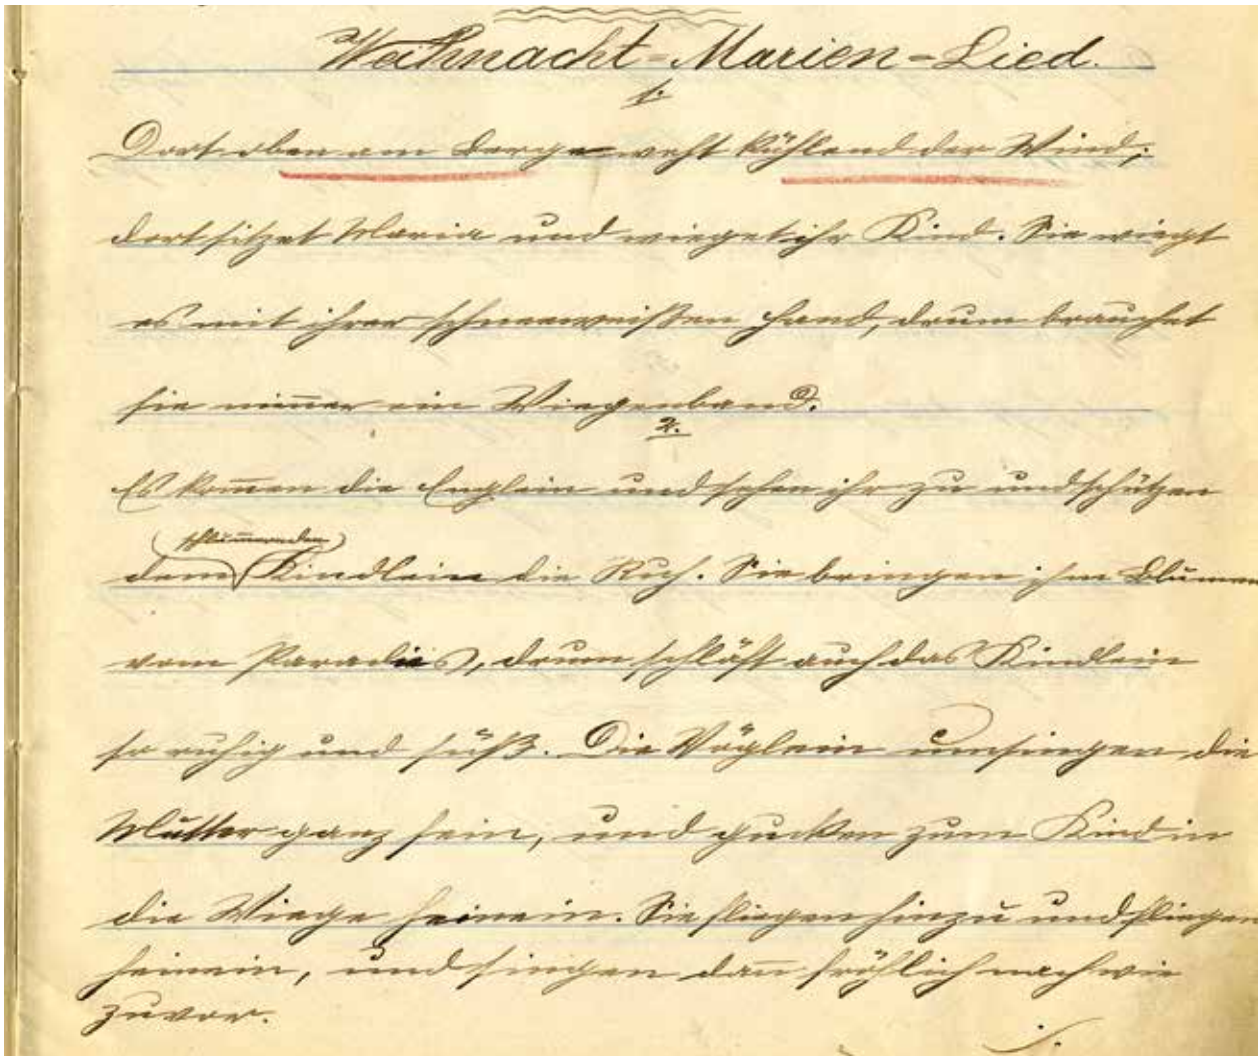 Weihnacht-Marien-Lied.
1.
Dort oben am Berge weht kühlend der Wind;
dort sitzet Maria und wieget ihr Kind. Sie wiegt
es mit ihrer schneeweißen Hand, drum brauchet
sie nim̅er ein Wiegenband.
2.
Es kom̅en die Englein und sehen ihr zu und schützen
schlum̅ernden
dem Kindlein die Ruh. Sie bringen ihm Blumen
vom Paradies, drum schläft auch das Kindlein
so ruhig und süß. Die Vöglein umsingen die
Mutter ganz fein, und gucken zum Kind in
die Wiege heinein. Sie fliegen hinzu und fliegen
heinein, und singen dan̅ fröhlich nach wie
zuvor.